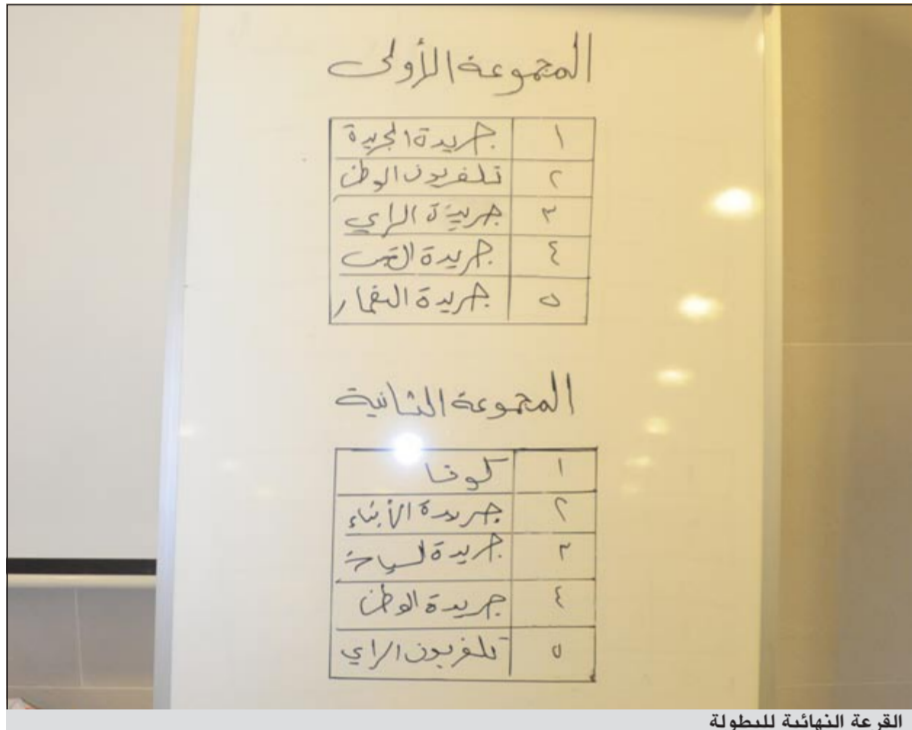 المجموعة الأولى
١ جريدة الجريدة
٢ تلفزيون الوطن
٣ جريدة الراي
٤ جريدة القبس
٥ جريدة النهار
المجموعة الثانية
١ كونا
٢ جريدة الأنباء
٣ جريدة السياسة
٤ جريدة الوطن
٥ تلفزيون الراي
القرعة النهائية للبطولة